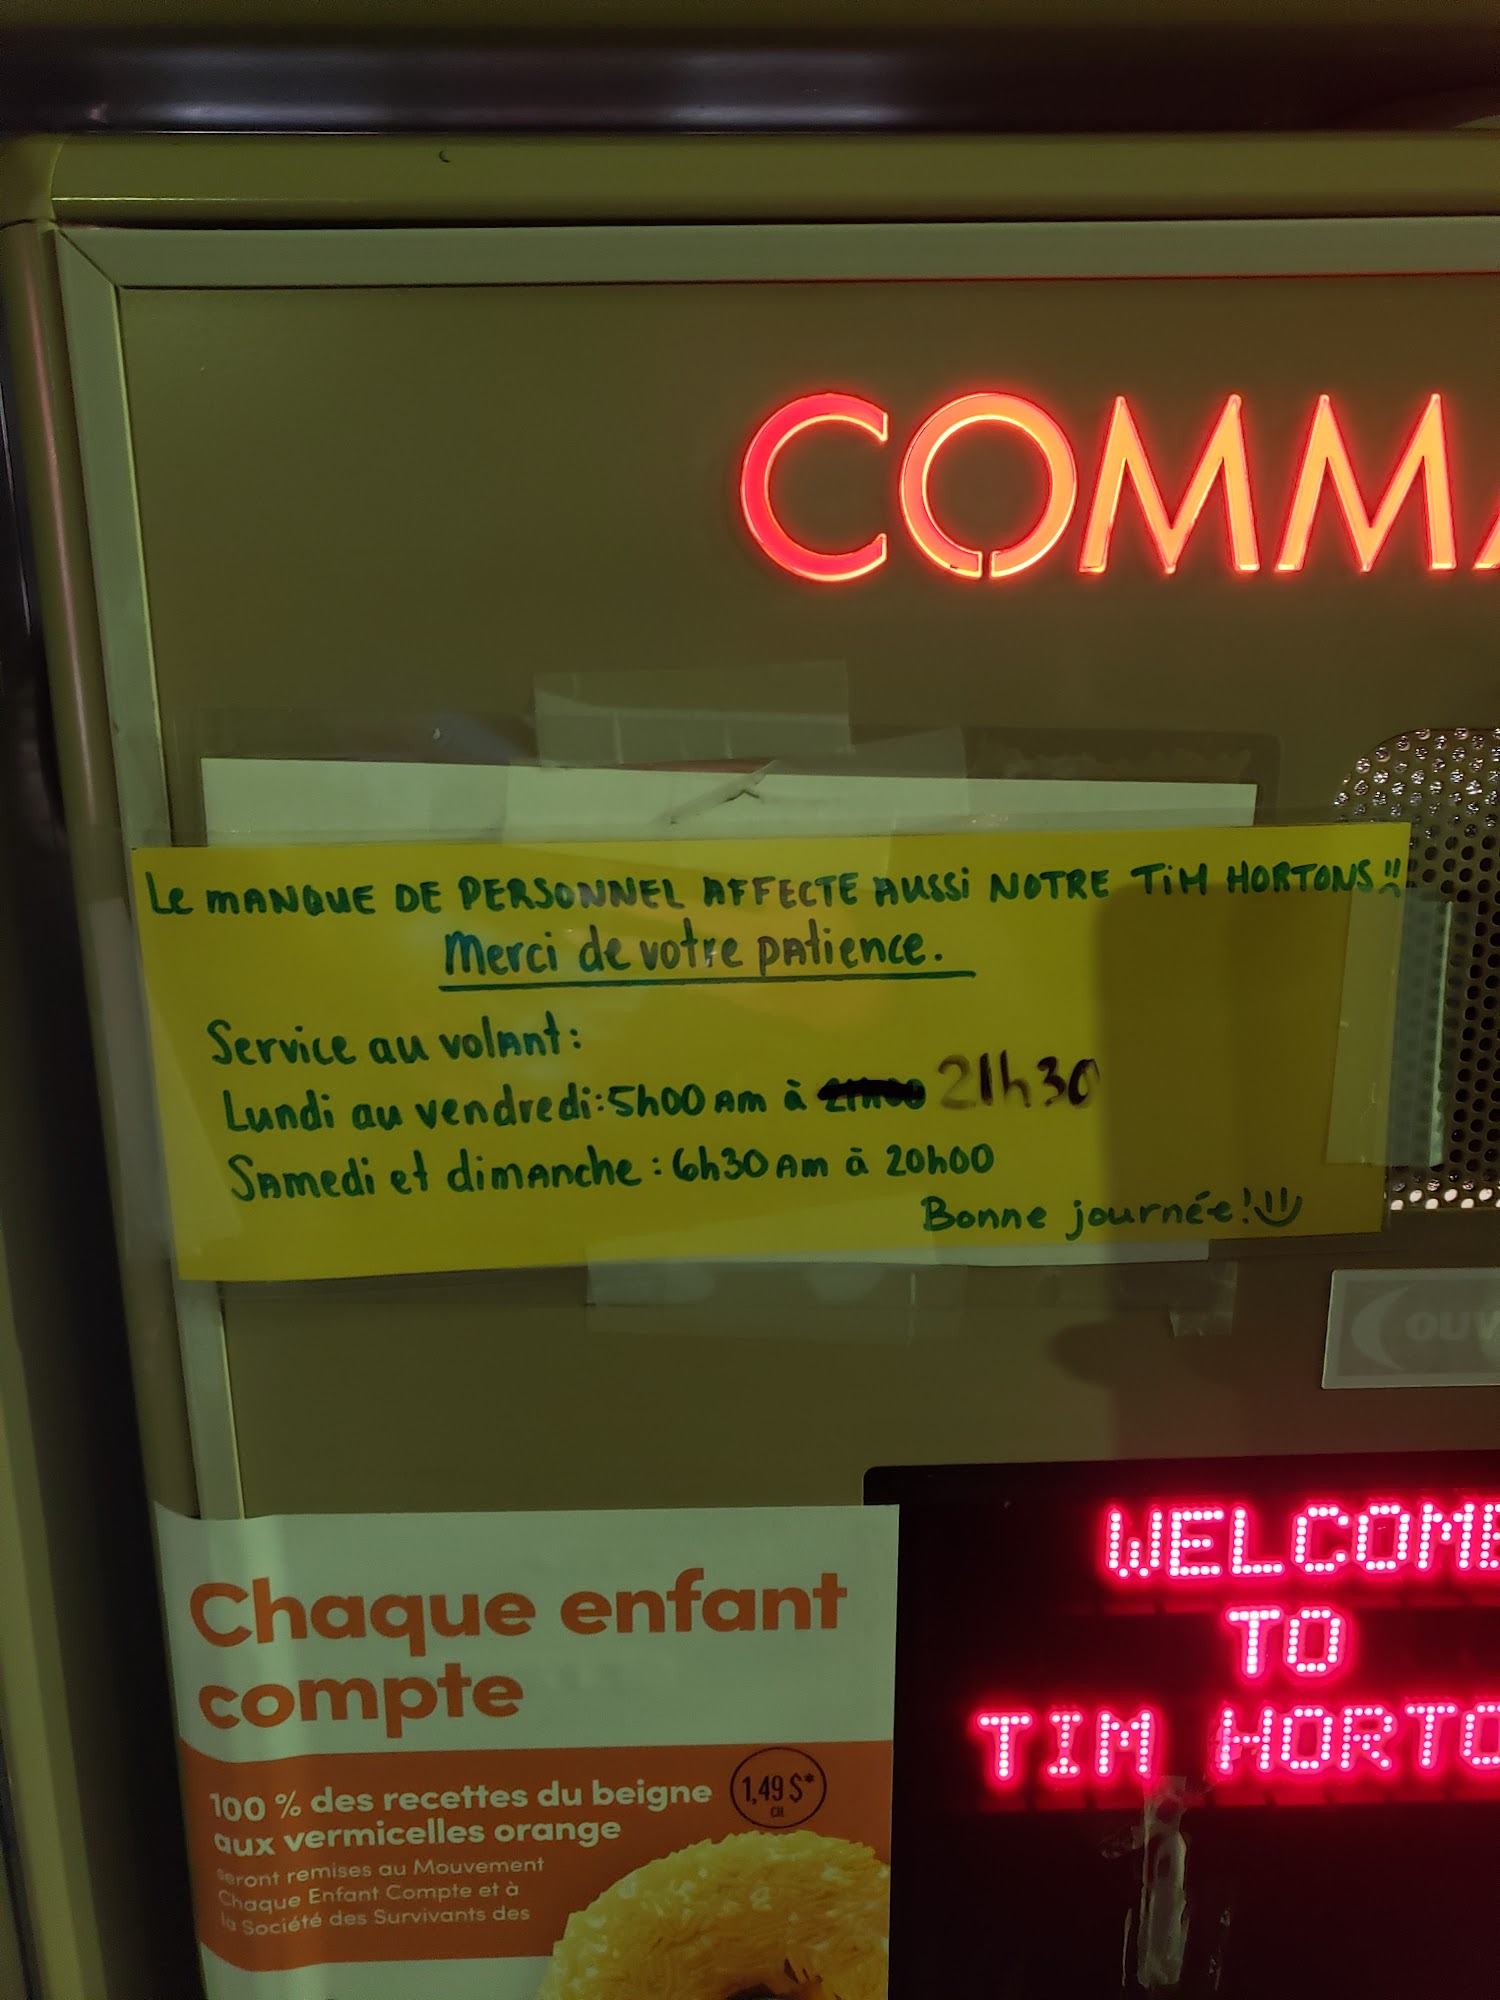 COMMA
LE MANQUE DE PERSONNEL AFFECTE AUSSI NOTRE TIM HORTONS!!
Merci de votre patience.
Service au volant:
Lundi au vendredi: 5h00 AM à 21h30
Samedi et dimanche: 6h30 AM à 20h00
Bonne journée!
OUV
WELCOME
TO
TIM HORTO
Chaque enfant
compte
100 % des recettes du beigne
aux vermicelles orange
1,49 $*
CH.
seront remises au Mouvement
Chaque Enfant Compte et à
la Société des Survivants des